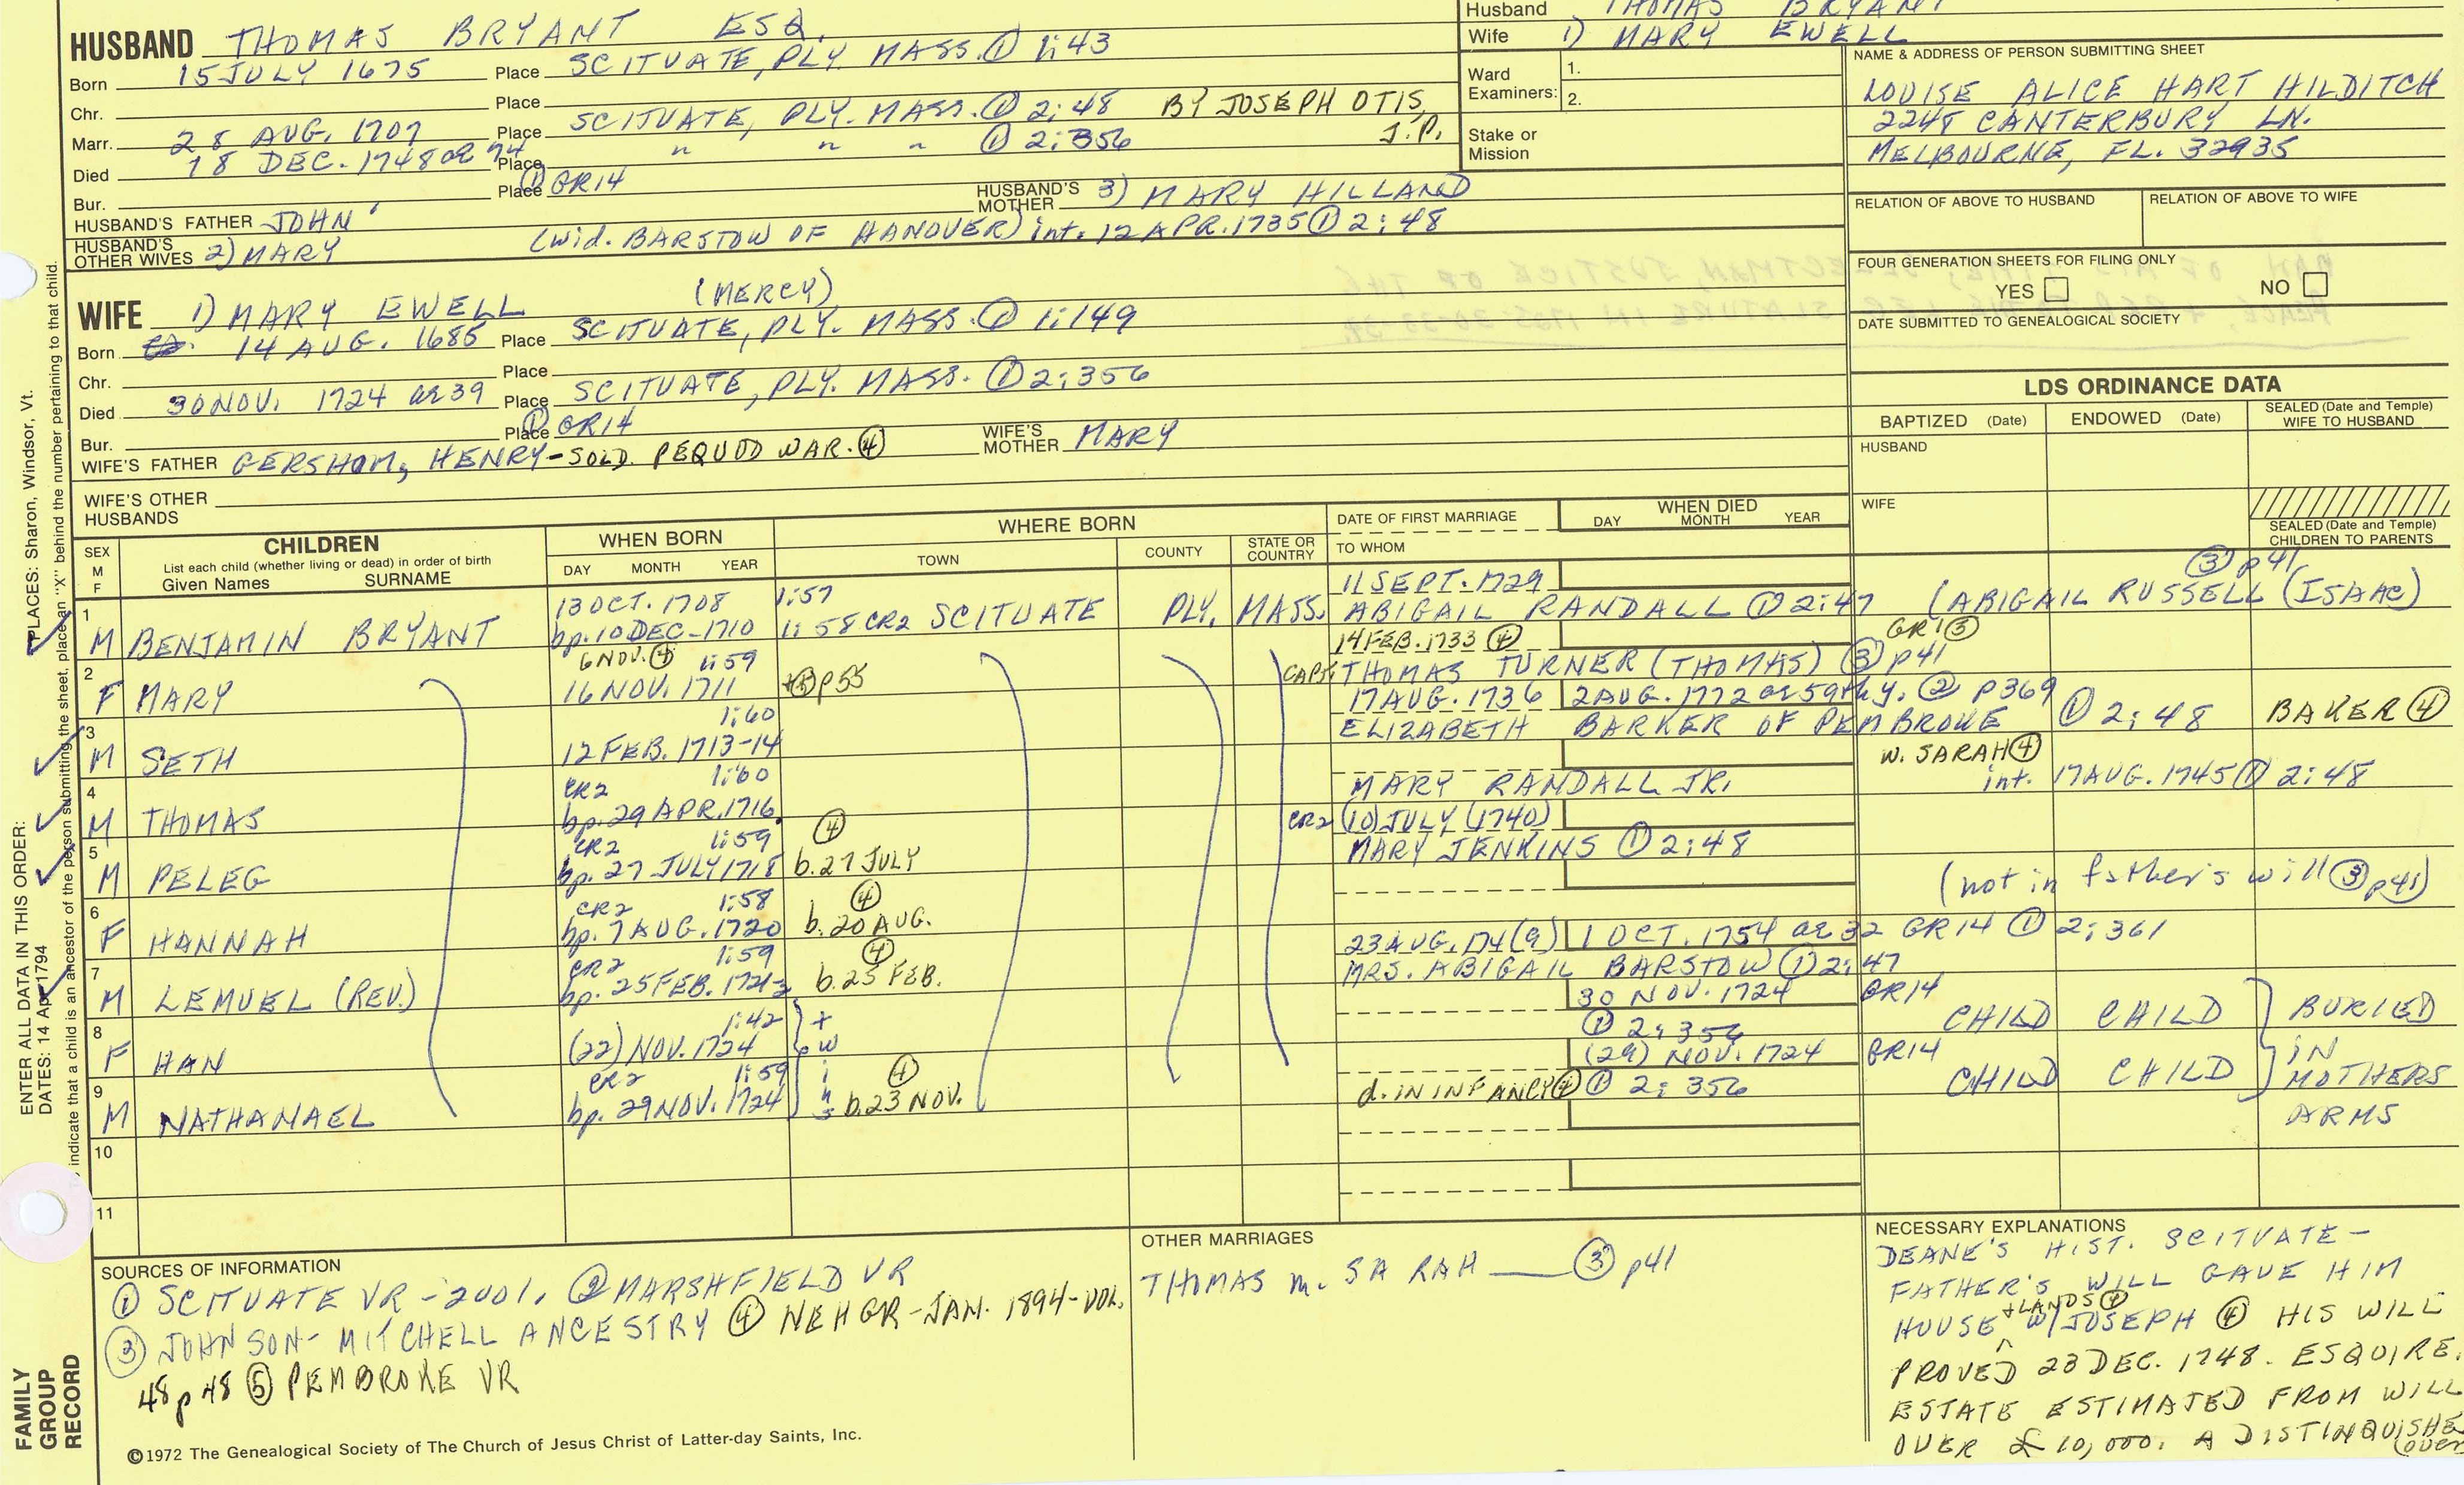 HUSBAND THOMAS BRYANT ESQ.
Born 15 JULY 1675 Place SCITUATE, PLY. MASS. ① 1:43
Chr. Place
Marr. 28 AUG. 1707 Place SCITUATE, PLY. MASS. ① 2:48 BY JOSEPH OTIS, J.P.
Died 18 DEC. 1748 ae 74 Place " " " ① 2:356
Bur. Place ① GR14
HUSBAND'S FATHER JOHN HUSBAND'S MOTHER 3) MARY HILLAND
HUSBAND'S OTHER WIVES 2) MARY (wid. BARSTOW OF HANOVER) int. 12 APR. 1735 ① 2:48
Husband THOMAS BRYANT
Wife 1) MARY EWELL
Ward Examiners: 1.
2.
Stake or Mission
NAME & ADDRESS OF PERSON SUBMITTING SHEET
LOUISE ALICE HART HILDITCH
2248 CANTERBURY LN.
MELBOURNE, FL. 32935
RELATION OF ABOVE TO HUSBAND RELATION OF ABOVE TO WIFE
FOUR GENERATION SHEETS FOR FILING ONLY
YES NO
DATE SUBMITTED TO GENEALOGICAL SOCIETY
WIFE 1) MARY EWELL (MERCY)
Born 14 AUG. 1685 Place SCITUATE, PLY. MASS. ① 1:149
Chr. Place
Died 30 NOV. 1724 ae 39 Place SCITUATE, PLY. MASS. ① 2:356
Bur. Place ① GR14
WIFE'S FATHER GERSHOM, HENRY - SOLD. PEQUOD WAR. ④ WIFE'S MOTHER MARY
WIFE'S OTHER HUSBANDS
LDS ORDINANCE DATA
BAPTIZED (Date) ENDOWED (Date) SEALED (Date and Temple) WIFE TO HUSBAND
HUSBAND
WIFE
SEALED (Date and Temple) CHILDREN TO PARENTS
SEX M F
CHILDREN
List each child (whether living or dead) in order of birth
Given Names SURNAME
WHEN BORN
DAY MONTH YEAR
WHERE BORN
TOWN COUNTY STATE OR COUNTRY
DATE OF FIRST MARRIAGE
TO WHOM
WHEN DIED
DAY MONTH YEAR
1 13 OCT. 1708 1:57 11 SEPT. 1729 ③ p41
M BENJAMIN BRYANT bp. 10 DEC-1710 1:58 CR2 SCITUATE PLY. MASS. ABIGAIL RANDALL ① 2:47 (ABIGAIL RUSSELL (ISAAC)
2 6 NOV. ④ 1:59 14 FEB. 1733 ④ GR1 ⑤
F MARY 16 NOV. 1711 p55 CAPT. THOMAS TURNER (THOMAS) ③ p41
3 1:60 17 AUG. 1736 2 AUG. 1772 ae 59th y. ② p369
M SETH 12 FEB. 1713-14 ELIZABETH BARKER OF PEMBROKE ① 2:48 BAKER ④
4 CR2 1:60 W. SARAH ④
M THOMAS bp. 29 APR. 1716 MARY RANDALL JR. int. 17 AUG. 1745 ① 2:48
5 CR2 1:59 ④ CR2 (10) JULY (1740)
M PELEG bp. 27 JULY 1718 b. 27 JULY MARY JENKINS ① 2:48
6 CR2 1:58 ④
F HANNAH bp. 7 AUG. 1720 b. 20 AUG. (not in father's will ③ p41)
7 CR2 1:59 ④ 23 AUG. 174(9) 1 OCT. 1754 ae 32 GR14 ① 2:361
M LEMUEL (REV.) bp. 25 FEB. 1721-2 b. 25 FEB. MRS. ABIGAIL BARSTOW ① 2:47
8 1:42 30 NOV. 1724 GR14
F HAN (22) NOV. 1724 twins ① 2:356 CHILD CHILD
9 CR2 1:59 ④ (29) NOV. 1724 GR14
M NATHANAEL bp. 29 NOV. 1724 b. 23 NOV. d. IN INFANCY ④ ① 2:356 CHILD CHILD
BURIED IN MOTHERS ARMS
10
11
SOURCES OF INFORMATION
① SCITUATE VR - 2001. ② MARSHFIELD VR
③ JOHNSON - MITCHELL ANCESTRY ④ NEHGR - JAN. 1894 - VOL.
48 p 48 ⑤ PEMBROKE VR
OTHER MARRIAGES
THOMAS m. SARAH ___ ③ p41
NECESSARY EXPLANATIONS
DEANE'S HIST. SCITUATE -
FATHER'S WILL GAVE HIM
HOUSE + LANDS ④ W/ JOSEPH ④ HIS WILL
PROVED 23 DEC. 1748. ESQUIRE.
ESTATE ESTIMATED FROM WILL
OVER £10,000. A DISTINQUISHE
(over
©1972 The Genealogical Society of The Church of Jesus Christ of Latter-day Saints, Inc.
FAMILY GROUP RECORD
ENTER ALL DATA IN THIS ORDER:
DATES: 14 Apr 1794
PLACES: Sharon, Windsor, Vt.
indicate that a child is an ancestor of the person submitting the sheet, place an "X" behind the number pertaining to that child.